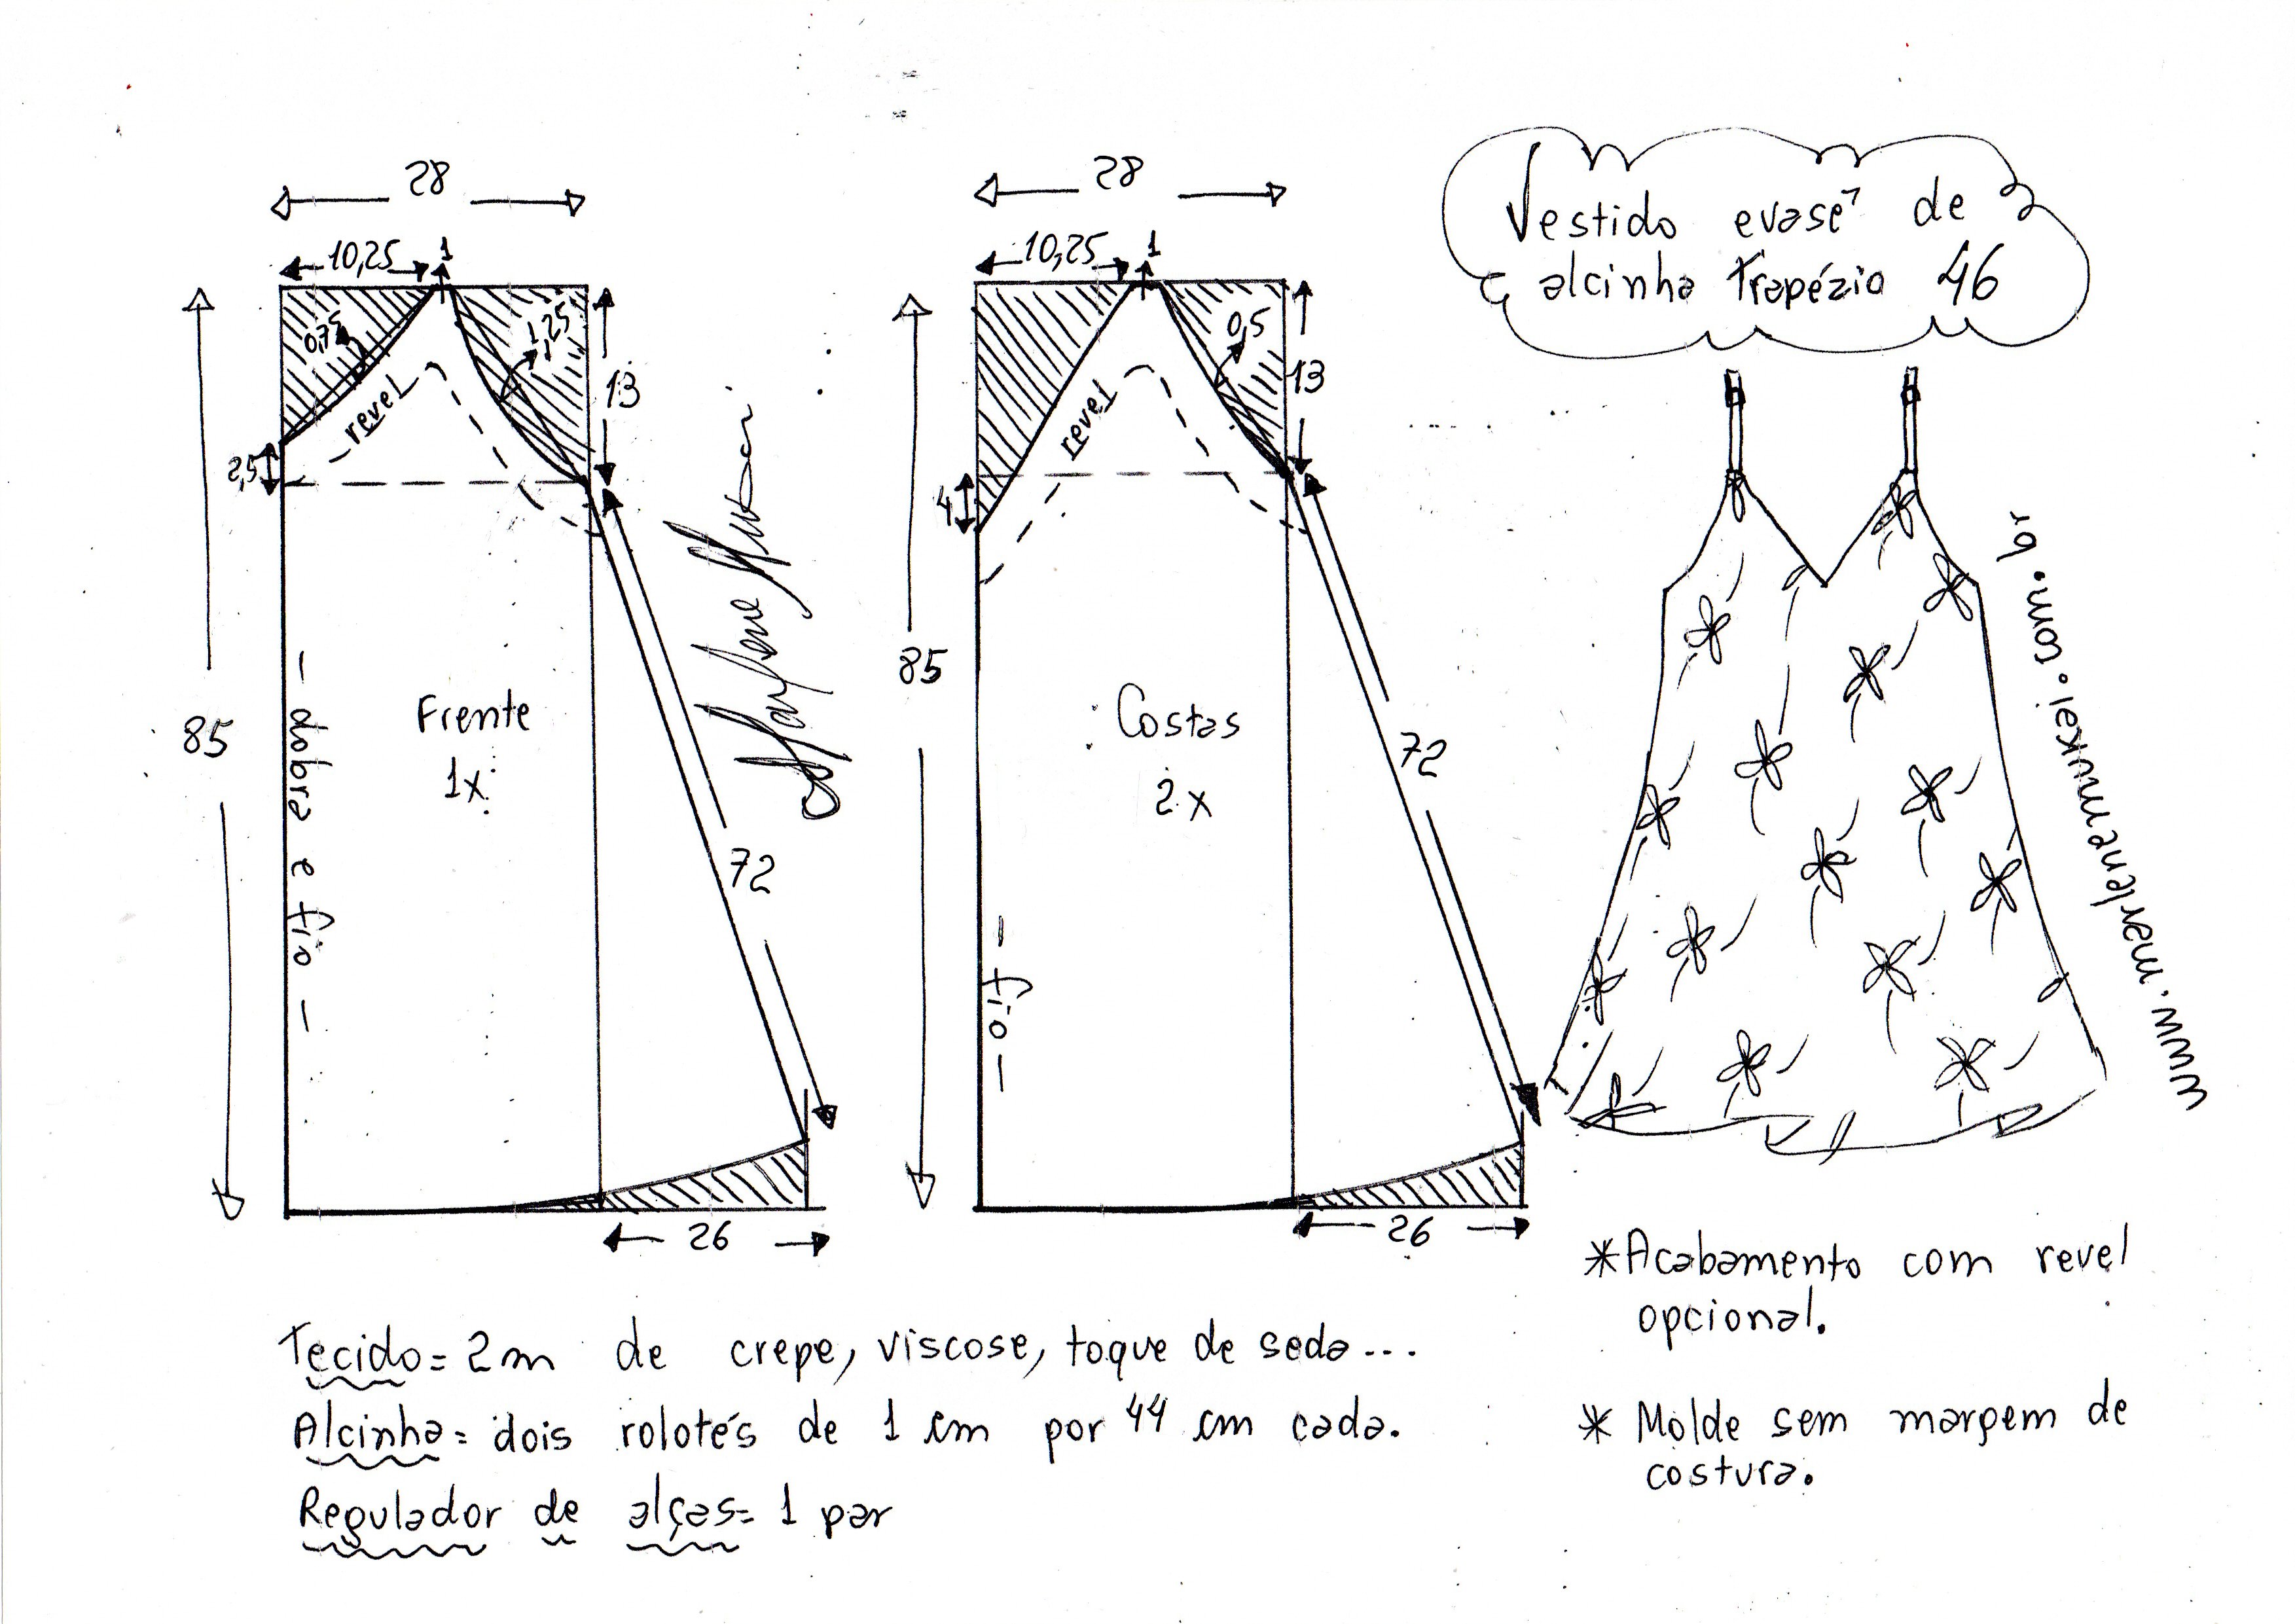 Vestido evasê de
alcinha trapézio 46
28
10,25
1
0,75
1,25
13
revel
2,5
85
Frente
1x
- dobra e fio -
72
26
28
10,25
1
0,5
13
revel
4
85
Costas
2x
- fio -
72
26
www.marlenemukai.com.br
Tecido = 2 m de crepe, viscose, toque de seda...
Alcinha = dois rolotés de 1 cm por 44 cm cada.
Regulador de alças = 1 par
* Acabamento com revel
opcional.
* Molde sem margem de
costura.